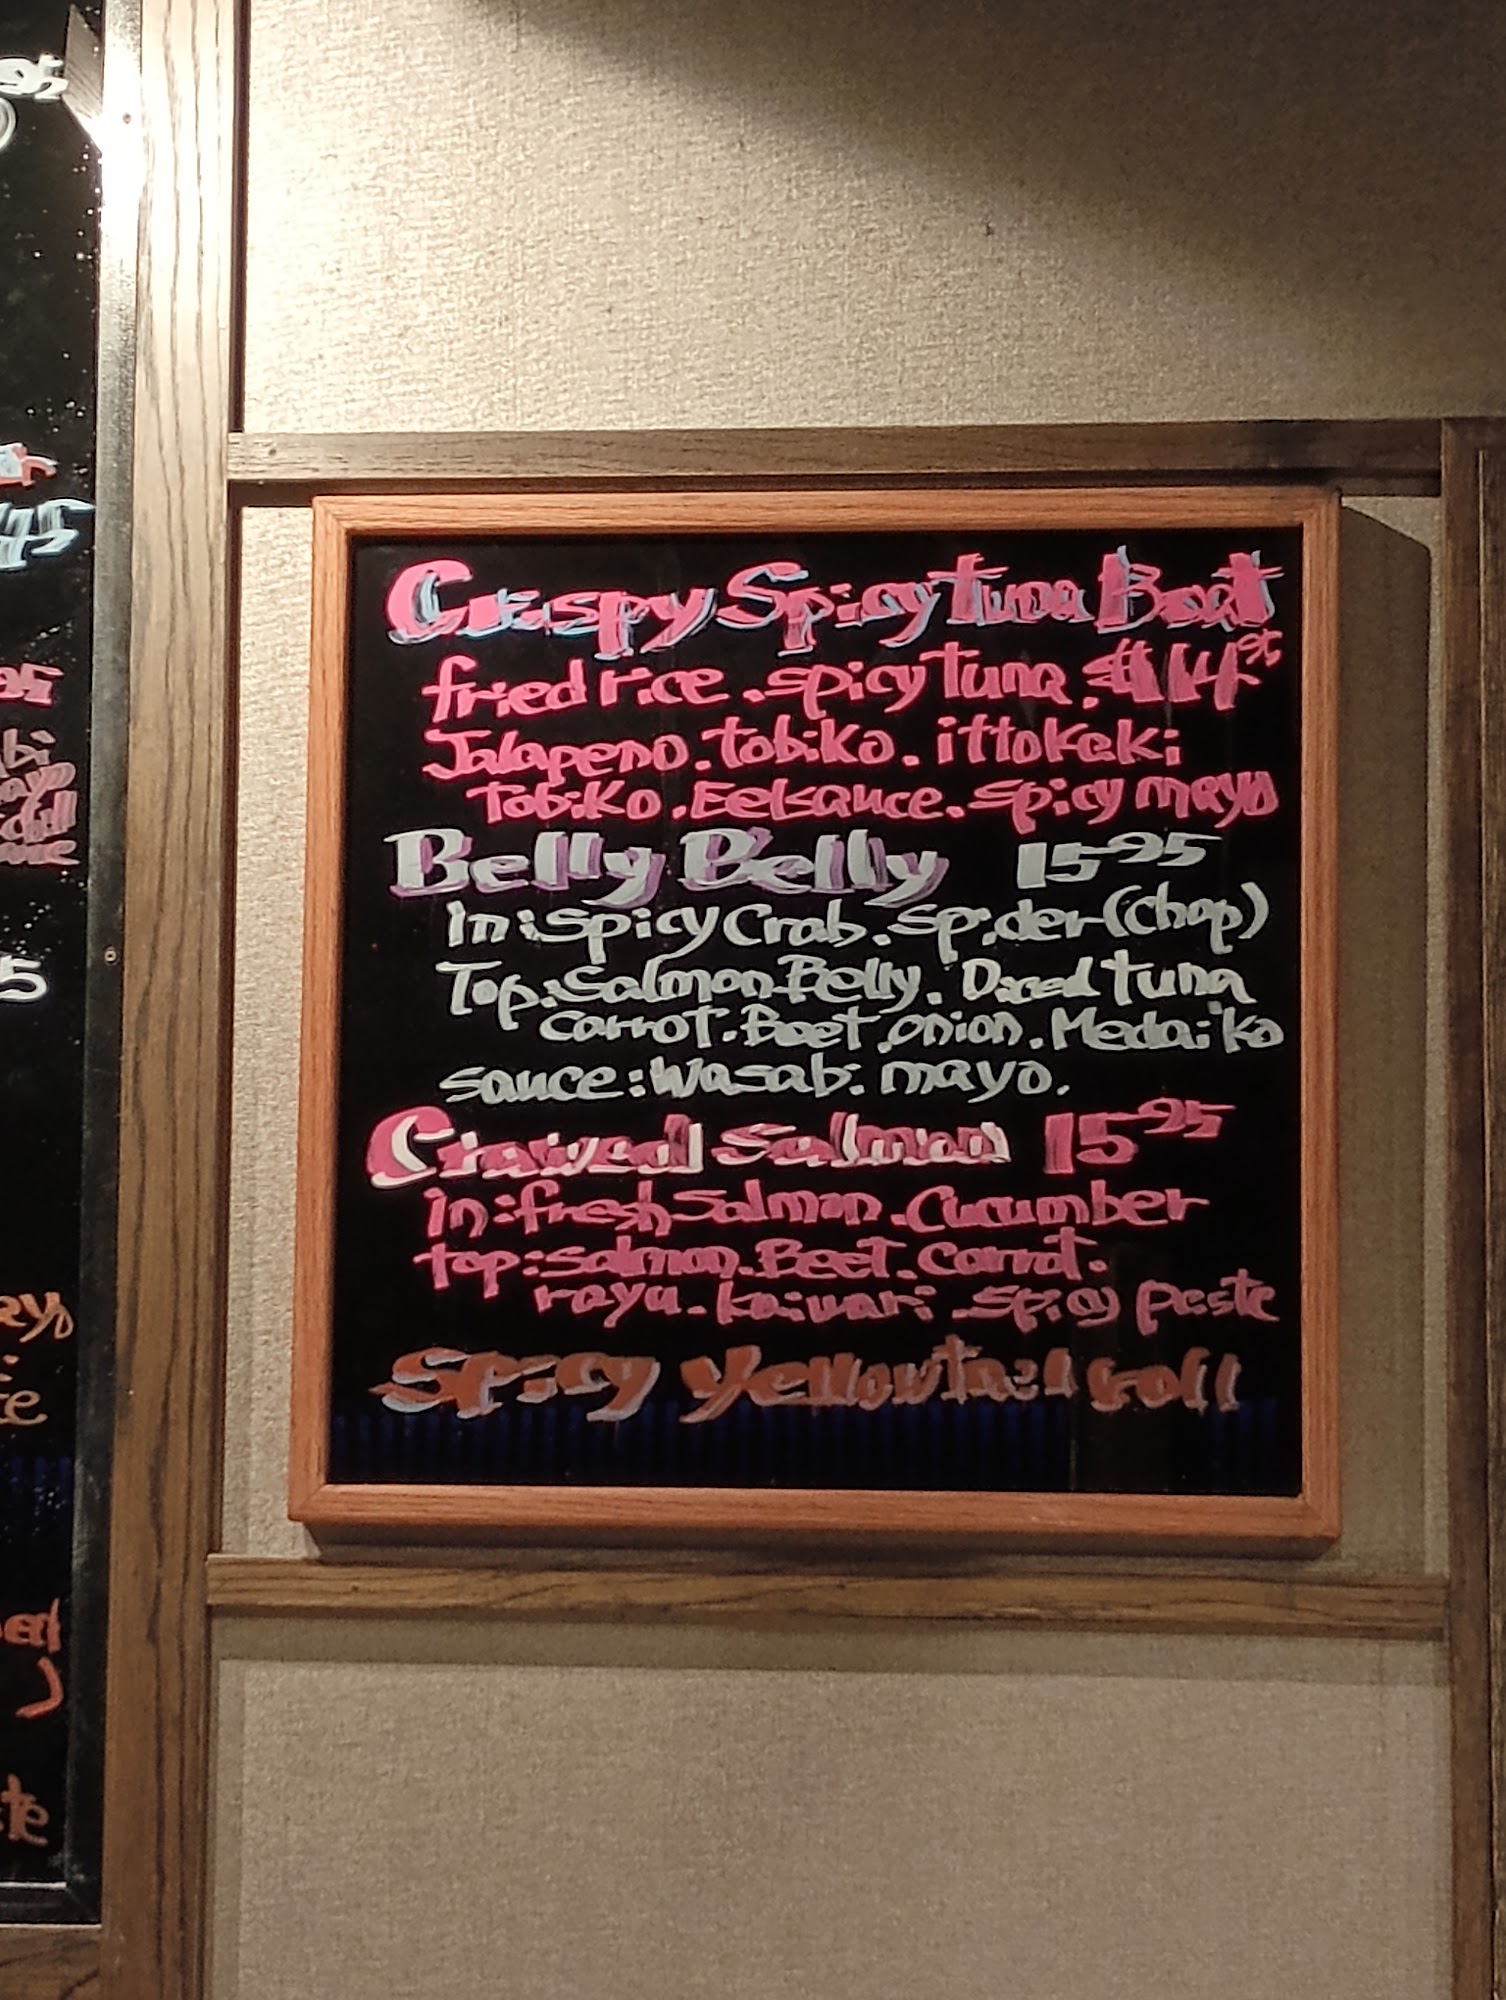 Crispy Spicy tuna Boat
fried rice . spicy tuna . $14 95
Jalapeno . tobiko . ittokaki
Tobiko . Eel sauce . spicy mayo
Belly Belly 15 95
in : spicy Crab . spider (chop)
Top : salmon Belly . Diced tuna
carrot . Beet . onion . Medaiko
sauce : wasabi mayo .
salmon 15 95
in : fresh salmon . Cucumber
top : salmon . Beet . carrot .
rayu . kaiwari . spicy paste
Spicy yellowtail roll